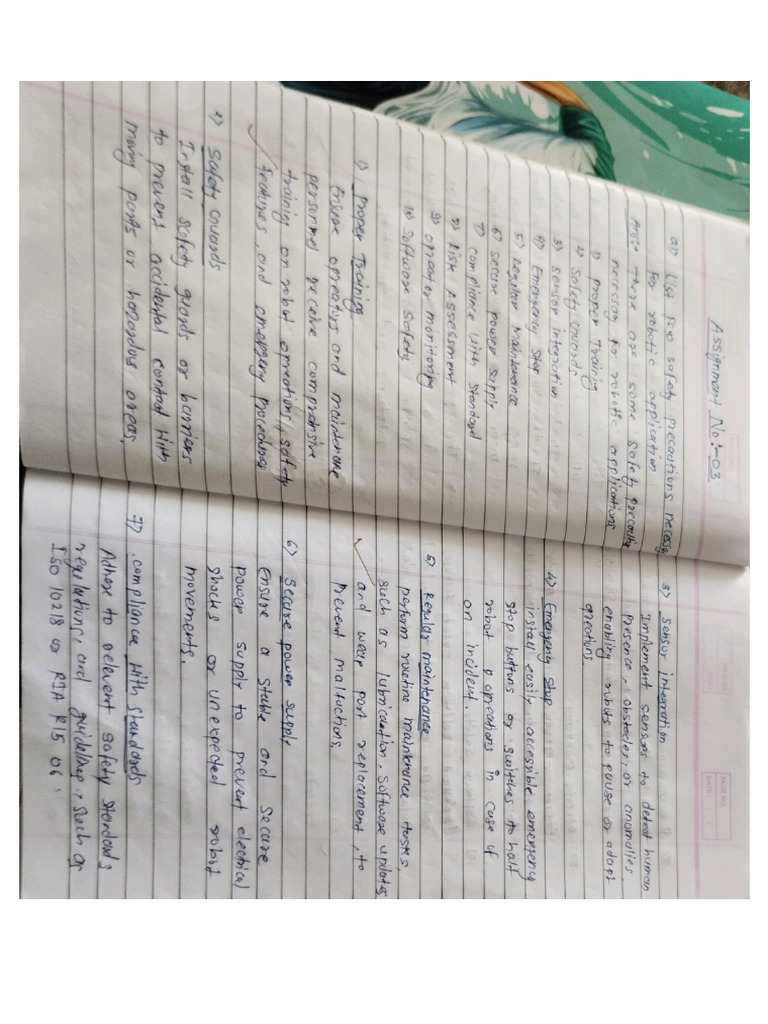 Assignment No:-03
Q1) List few safety precautions necessary
for robotic application
Ans:- There are some safety precautions
necessary for robotic applications
1) Proper Training
2) Safety Guards:
3) sensor integration
4) Emergency stop
5) Regular Maintenance
6) secure power supply
7) compliance With Standard
8) Risk Assessment
9) operator monitoring
10) Software Safety
1) Proper Training
Ensure opreators and maintenance
personnel receive comprehensive
training on robot opreations, safety
features, and emergency procedures
2) Safety Guards
Install safety guards or barriers
to prevent accidental contact With
moving parts or hazardous areas,
3) Sensor integration
Implement sensors to detect human
presence, obstacles, or anomalies,
enabling robots to pause or adapt
opreations.
4) Emergency Stop
install easily accessible emergency
stop buttons or switches to halt
robot opreations in case of
an incident.
5) Regular maintenance
perform routine maintenance tasks,
such as lubrication, software updates
and wear part replacement, to
prevent malfuctions.
6) Secure power supply
Ensure a stable and secure
power supply to prevent electrical
shocks or unexpected robot
movements.
7) compliance With standards
Adhere to relevent safety standards
regulations and guidelines, such as
ISO 10218 or RIA R15 06.